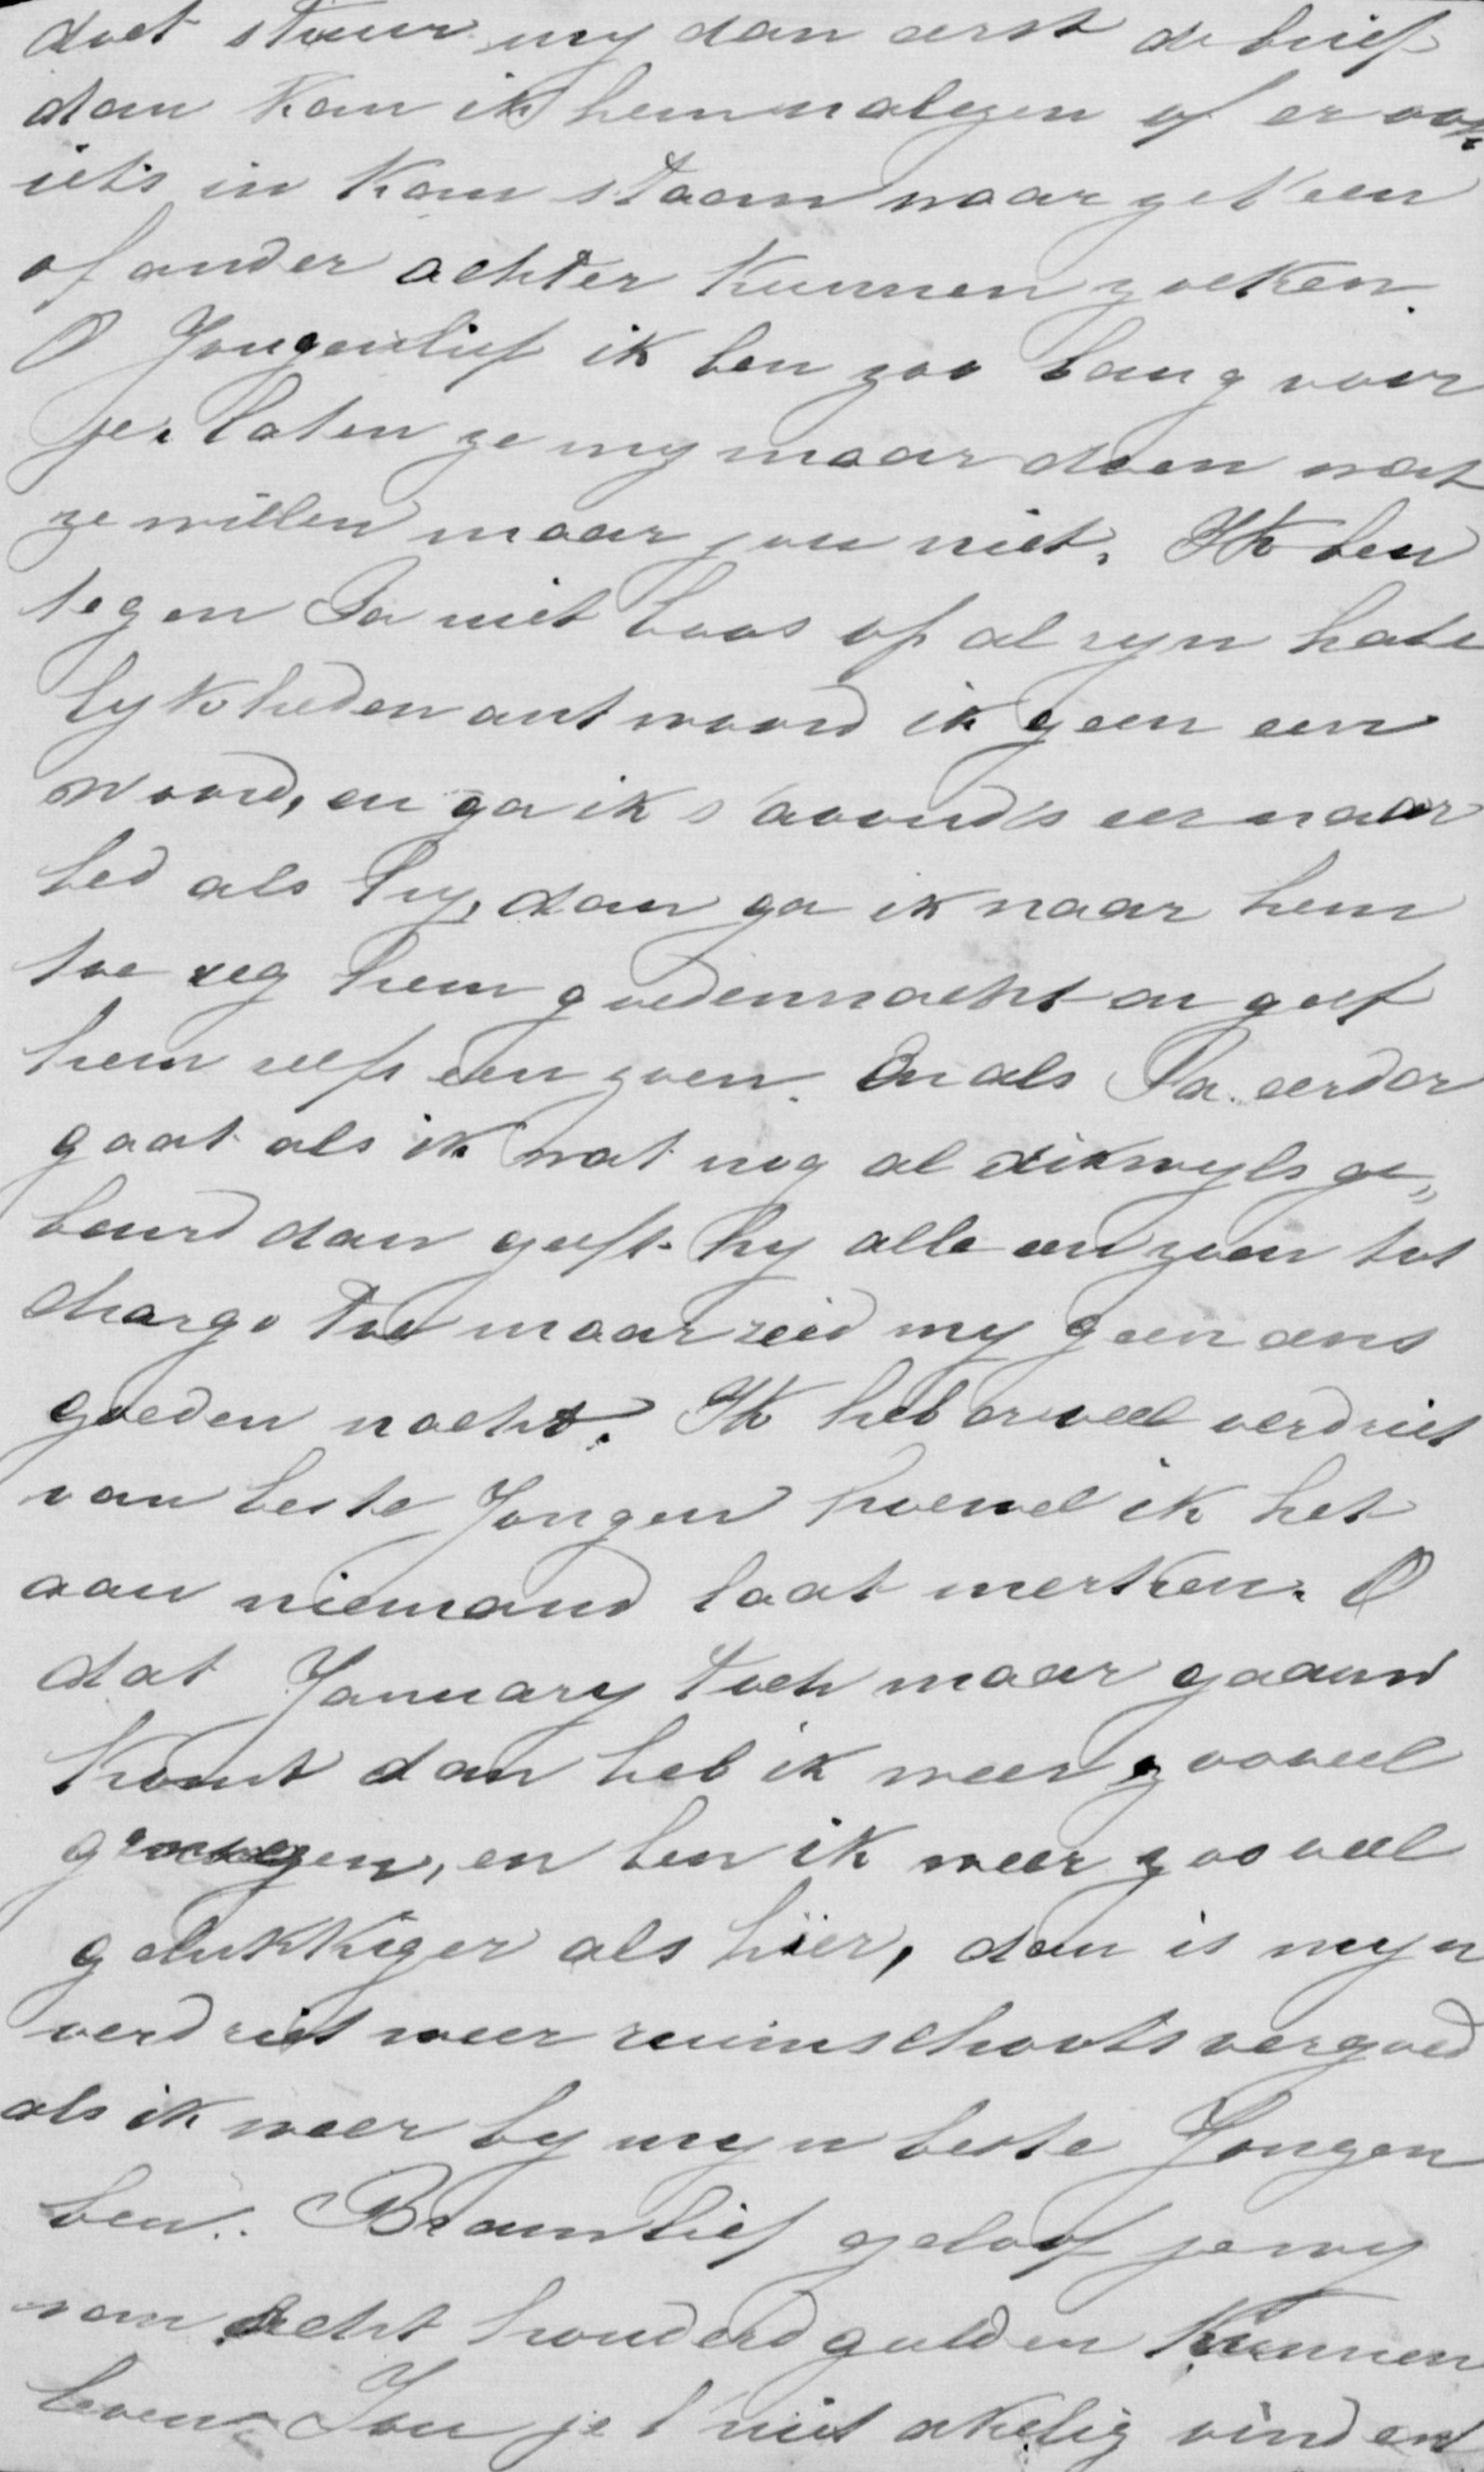 doet stuur my dan eerst de brief
dan kan ik hem nalezen of er ook
iets in kan staan waar ze t een
of ander achter kunnen zoeken.
O Jongenlief ik ben zoo bang voor
je. Laten ze my maar doen wat
ze willen maar jou niet. Ik ben
tegen Pa niet boos op al zyn hate
lykheden antwoord ik geen een
woord, en ga ik s'avonds eer naar
bed als hy, dan ga ik naar hem
toe zeg hem goedennacht en geef
hem zelfs een zoen. En als Pa eerder
gaat als ik wat nog al dikwyls ge„
beurd dan geeft hy alle een zoen tot
toe maar zeid my geen eens
goeden nacht. Ik heb er veel verdriet
van beste Jongen hoewel ik het
aan niemand laat merken. O
dat January toch maar gaauw
komt dan heb ik weer zooveel
genoegen, en ben ik weer zooveel
gelukkiger als hier, dan is myn
verdriet weer ruimschoots vergoed
als ik weer by myn beste Jongen
ben. Bramlief geloof je wy
van acht honderd gulden kunnen
leven. Zou je t niet akelig vinden